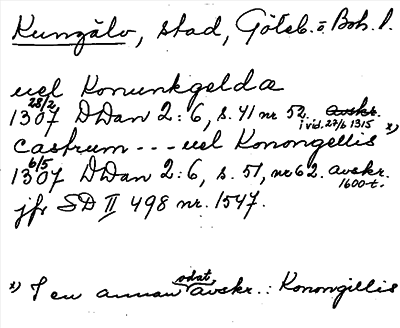 Kungälv, stad, Göteb. o. Boh. l.
uel Konunkgelda
28/2
1307 DDan 2:6, s. 41 nr 52. avskr.
i vid. 27/6 1315
castrum --- uel Konongellis *)
6/5
1307 DDan 2:6, s. 51, nr 62. avskr.
1600-t.
jfr SD II 498 nr. 1547.
*) I en annan odat. avskr.: Konongillis